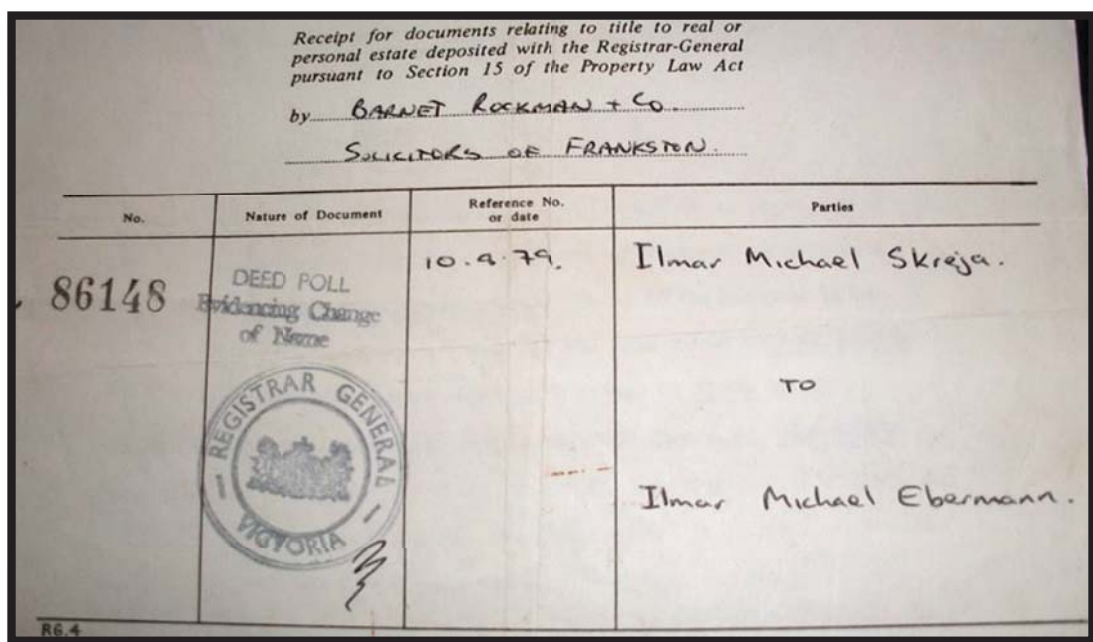 Receipt for documents relating to title to real or
personal estate deposited with the Registrar-General
pursuant to Section 15 of the Property Law Act
by BARNET ROCKMAN + Co.
SOLICITORS OF FRANKSTON.
No.
Nature of Document
Reference No.
or date
Parties
86148
DEED POLL
Evidencing Change
of Name
10.9.79.
Ilmar Michael Skreja.
TO
Ilmar Michael Ebermann.
REGISTRAR GENERAL
VICTORIA
R6.4